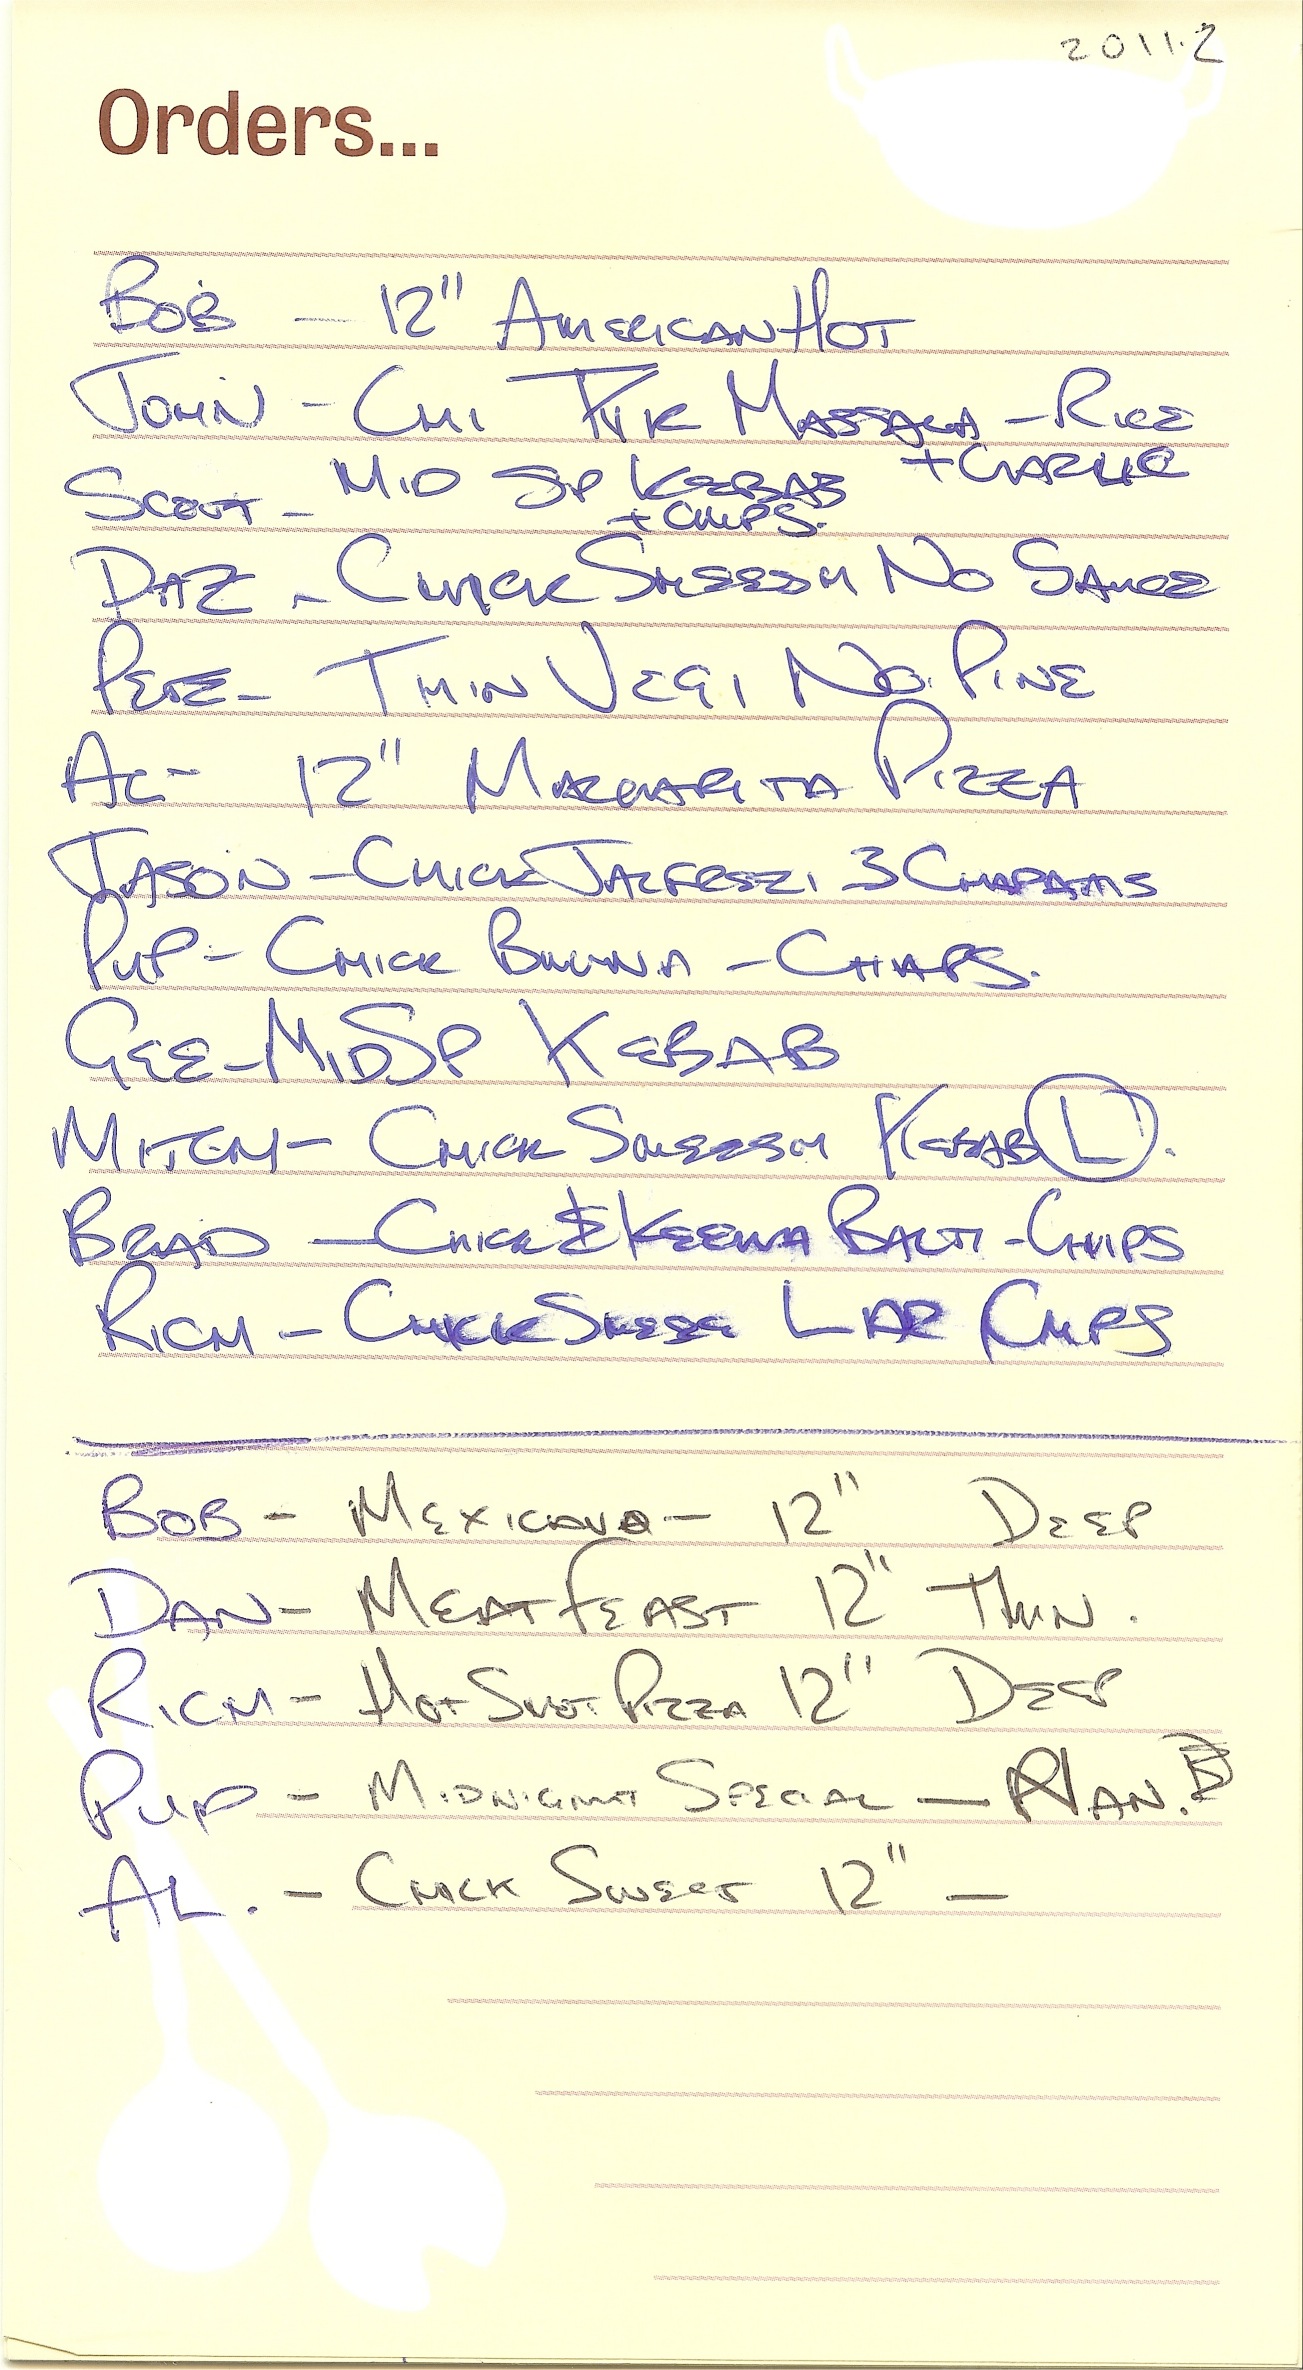 2011.2
Orders...
BOB - 12" AMERICAN HOT
JOHN - CHI TIK MASSALA - RICE
+ GARLIC
SCOUT - MID SP KEBAB
+ CHIPS.
DAZ - CHICK SHEESH NO SAUCE
PETE - THIN VEGI NO PINE
AL - 12" MARGARITA PIZZA
JASON - CHICK JALFREZI 3 CHAPATIS
PUP - CHICK BHUNA - CHAPS.
GEE - MID SP KEBAB
MITCH - CHICK SHEESH KEBAB L.
BRAD - CHICK & KEEMA BALTI - CHIPS
RICH - CHICK SHEESH LAR CHIPS
BOB - MEXICANO - 12" DEEP
DAN - MEAT FEAST 12" THIN.
RICH - HOT SHOT PIZZA 12" DEEP
PUP - MIDNIGHT SPECIAL - NAN.
AL. - CHICK SWEET 12" -